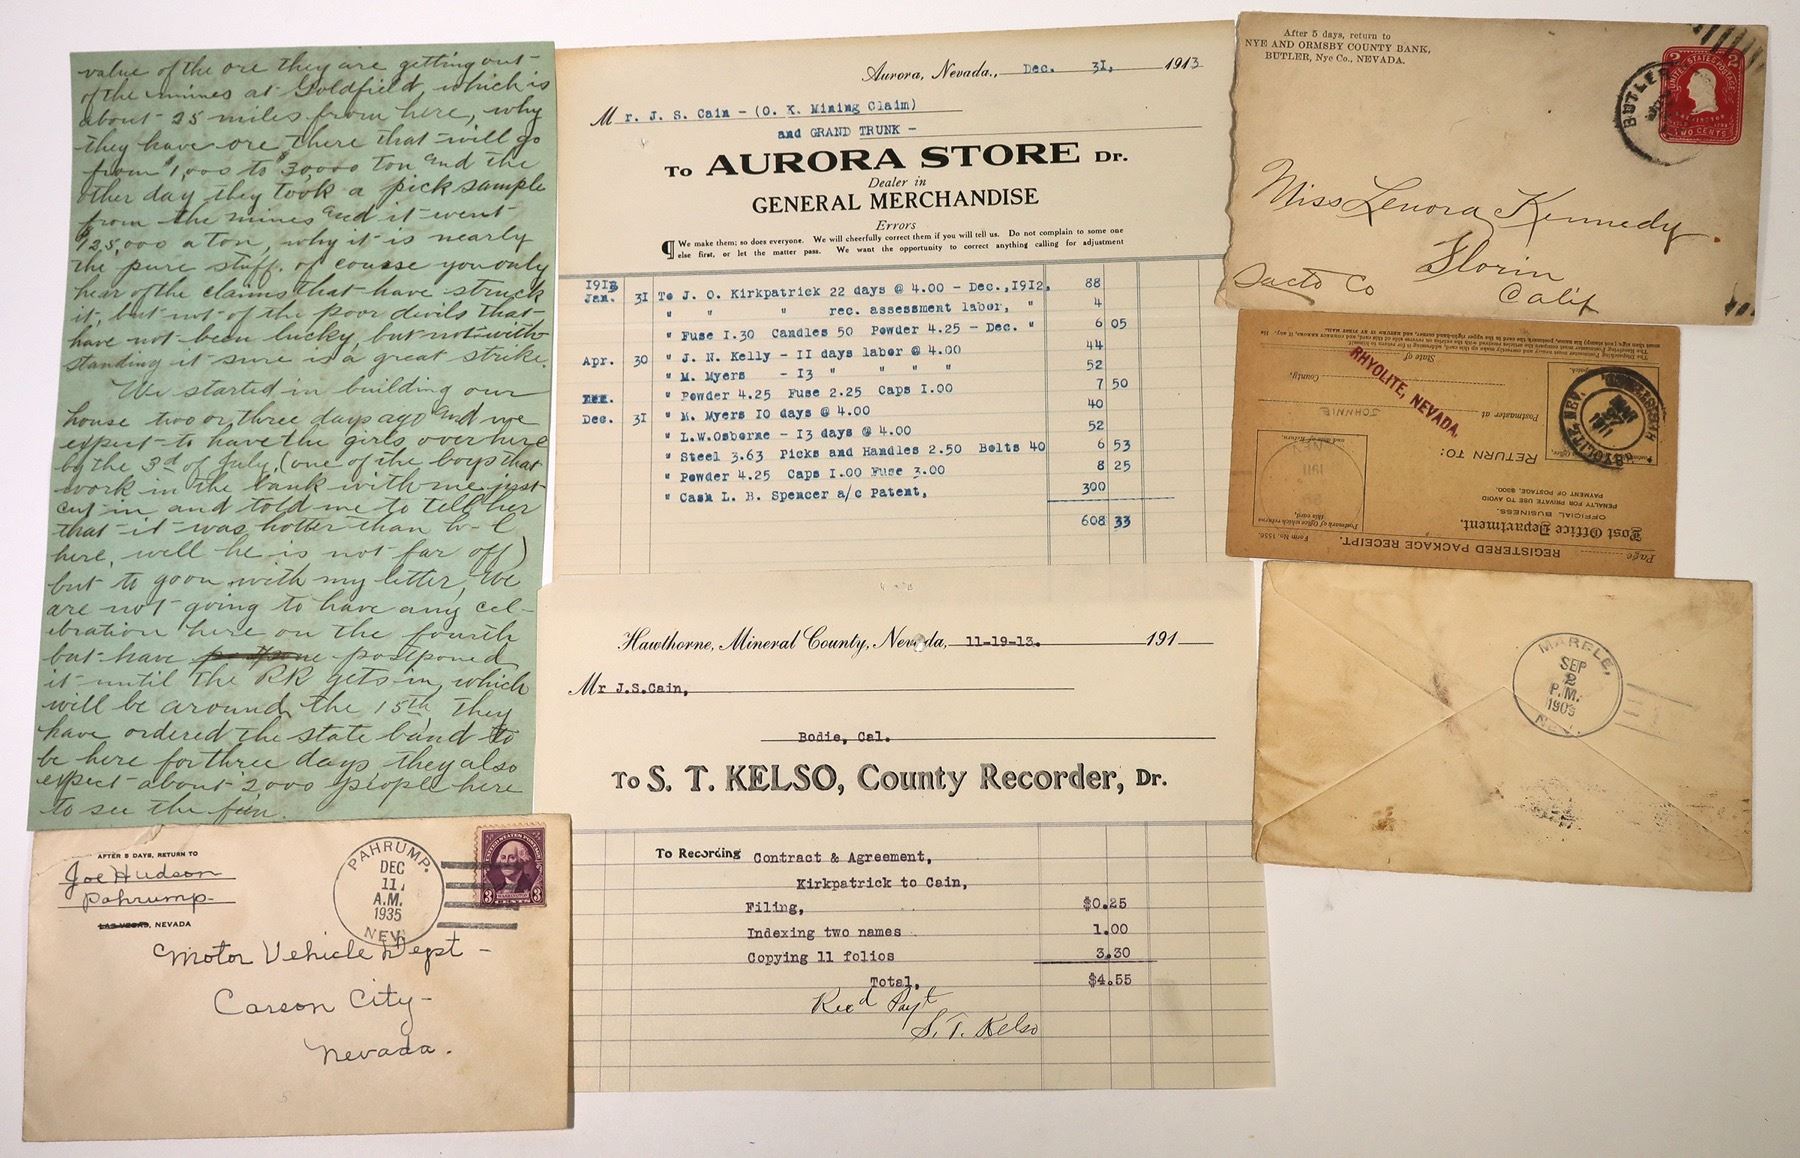 value of the ore they are getting out
of the mines at Goldfield, which is
about 25 miles from here, why
they have ore there that will go
from $1,000 to $30,000 ton and the
other day they took a pick sample
from the mines and it went
$125,000 a ton, why it is nearly
the pure stuff. of course you only
hear of the claims that have struck
it, but not of the poor devils that
have not been lucky, but notwith-
standing it sure is a great strike.
We started in building our
house two or three days ago and we
expect to have the girls over here
by the 3rd of July. (one of the boys that
work in the bank with me just
cut in and told me to tell her
that it was hotter than h-l
here, well he is not far off)
but to go on with my letter, We
are not going to have any cel-
ebration here on the fourth
but have postponed
it until the RR gets in, which
will be around the 15th, They
have ordered the state band to
be here for three days they also
expect about 2,000 people here
to see the fun.
Aurora, Nevada., Dec. 31, 1913
Mr. J. S. Cain - (O. K. Mining Claim)
and GRAND TRUNK -
To AURORA STORE Dr.
Dealer in
GENERAL MERCHANDISE
Errors
¶ We make them; so does everyone. We will cheerfully correct them if you will tell us. Do not complain to some one
else first, or let the matter pass. We want the opportunity to correct anything calling for adjustment
1913
Jan. 31 To J. O. Kirkpatrick 22 days @ 4.00 - Dec., 1912, 88
" " " rec. assessment labor, " 4
" Fuse 1.30 Candles 50 Powder 4.25 - Dec. " 6 05
Apr. 30 " J. N. Kelly - 11 days labor @ 4.00 44
" M. Myers - 13 " " " " 52
" Powder 4.25 Fuse 2.25 Caps 1.00 7 50
Dec. 31 " M. Myers 10 days @ 4.00 40
" L.W.Osborne - 13 days @ 4.00 52
" Steel 3.63 Picks and Handles 2.50 Bolts 40 6 53
" Powder 4.25 Caps 1.00 Fuse 3.00 8 25
" Cash L. B. Spencer a/c Patent, 300
608 33
Hawthorne, Mineral County, Nevada, 11-19-13. 191
Mr J.S.Cain,
Bodie, Cal.
To S. T. KELSO, County Recorder, Dr.
To Recording Contract & Agreement,
Kirkpatrick to Cain,
Filing, $0.25
Indexing two names 1.00
Copying 11 folios 3.30
Total, $4.55
Recd Payt
S. T. Kelso
After 5 days, return to
NYE AND ORMSBY COUNTY BANK,
BUTLER, Nye Co., NEVADA.
BUTLER
UNITED STATES POSTAGE
2 2
WASHINGTON
TWO CENTS
Miss Lenora Kennedy.
Florin
Sacto Co
Calif
Page
REGISTERED PACKAGE RECEIPT.
Form No. 1556.
Post Office Department,
OFFICIAL BUSINESS.
PENALTY FOR PRIVATE USE TO AVOID
PAYMENT OF POSTAGE, $300.
RETURN TO:
Postmaster at JOHNNIE
County,
State of
RHYOLITE, NEVADA.
RHYOLITE, NEV.
REGISTERED
MAR
1911
MARBLE,
SEP
2
P.M.
1909
NEV.
AFTER 5 DAYS, RETURN TO
Joe Hudson
Pahrump
LAS VEGAS, NEVADA
PAHRUMP.
DEC
11
A.M.
1935
NEV.
UNITED STATES POSTAGE
3 3
CENTS
Motor Vehicle Dept -
Carson City -
Nevada.